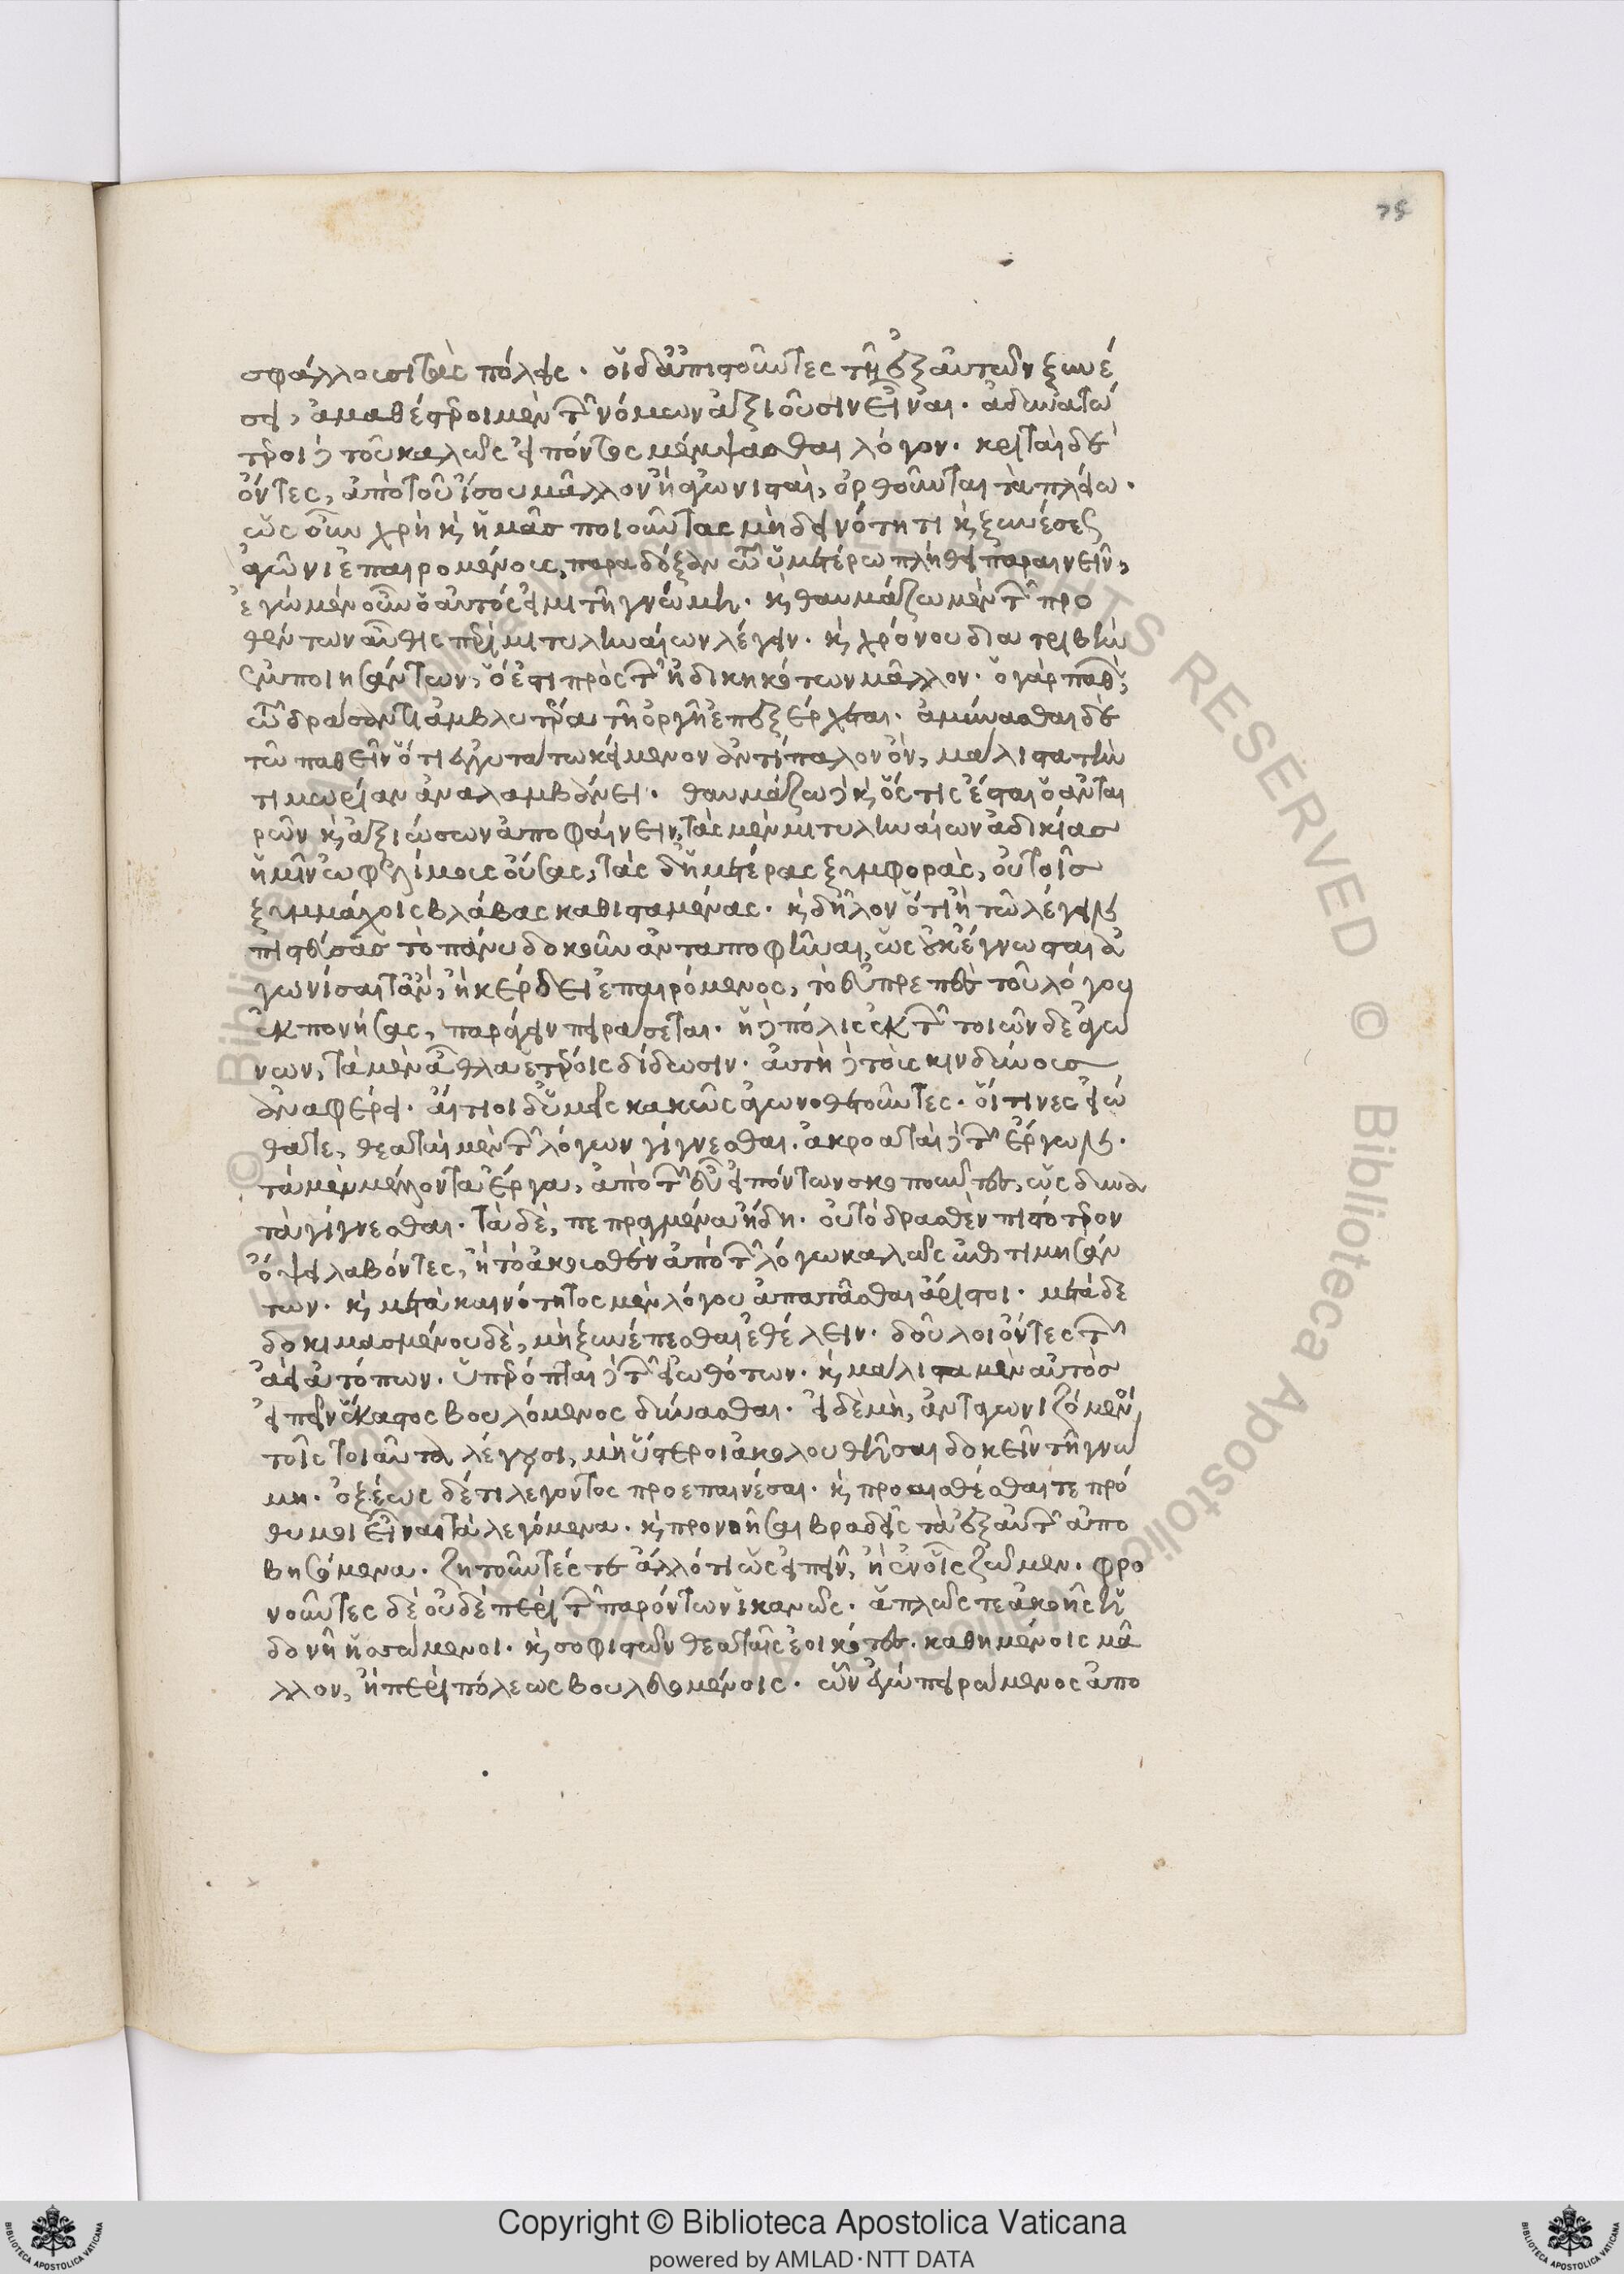 75
σφάλλουσι τὰς πόλεις. οἱ δ' ἀπιστοῦντες τῇ ἐξ αὐτῶν ξυνέ
σει, ἀμαθέστεροι μὲν τῶν νόμων ἀξιοῦσιν εἶναι. ἀδυνατώ
τεροι δὲ τοῦ καλῶς εἰπόντος μέμψασθαι λόγον. κριταὶ δὲ
ὄντες, ἀπὸ τοῦ ἴσου μᾶλλον ἢ ἀγωνισταὶ, ὀρθοῦνται τὰ πλείω.
ὣς οὖν χρὴ καὶ ἡμᾶς ποιοῦντας μὴ δεινότητι καὶ ξυνέσεως
ἀγῶνι ἐπαιρομένους, παρὰ δόξαν τῷ ὑμετέρω πλήθει παραινεῖν,
ἐγὼ μὲν οὖν ὁ αὐτός εἰμι τῇ γνώμη. καὶ θαυμάζω μὲν τῶν προ
θέντων αὖθις περὶ μιτυληναίων λέγειν. καὶ χρόνου διατριβὴν
ἐμποιησάντων, ὅ ἐστι πρὸς τῶν ἠδικηκότων μᾶλλον. ὁ γὰρ παθὼν,
τῷ δράσαντι ἀμβλυτέρα τῇ ὀργῇ ἐπεξέρχεται. ἀμύνασθαι δὲ
τῶ παθεῖν ὅτι ἐγγυτάτω κείμενον ἀντίπαλον ὂν, μάλιστα τὴν
τιμωρίαν ἀναλαμβάνει. θαυμάζω δὲ καὶ ὅστις ἔσται ὁ ἀντε
ρῶν καὶ ἀξιώσων ἀποφαίνειν, τὰς μὲν μιτυληναίων ἀδικίας
ἡμῖν ὠφελίμους οὔσας, τὰς δ' ἡμετέρας ξυμφορὰς, οὐ τοῖς
ξυμμάχοις βλάβας καθισταμένας. καὶ δῆλον ὅτι ἢ τῶ λέγειν
πιστεύσας τὸ πάνυ δοκοῦν ἀνταποφῆναι, ὡς οὐκ ἔγνωσται ἀ
γωνίσαιτ' ἂν, ἢ κέρδει ἐπαιρόμενος, τὸ εὐπρεπὲς τοῦ λόγου
ἐκπονήσας, παράγειν πειράσεται. ἡ δὲ πόλις ἐκ τῶν τοιῶνδε ἀγώ
νων, τὰ μὲν ἆθλα ἑτέροις δίδωσιν. αὐτὴ δὲ τοὺς κινδύνους
ἀναφέρει. αἴτιοι δ' ὑμεῖς κακῶς ἀγωνοθετοῦντες. οἵτινες εἰώ
θατε, θεαταὶ μὲν τῶν λόγων γίγνεσθαι. ἀκροαταὶ δὲ τῶν ἔργων.
τὰ μὲν μέλλοντα ἔργα, ἀπὸ τῶν εὖ εἰπόντων σκοποῦντες, ὡς δυνα
τὰ γίγνεσθαι. τὰ δὲ, πεπραγμένα ἤδη. οὐ τὸ δρασθὲν πιστότερον
ὄψει λαβόντες, ἢ τὸ ἀκουσθὲν ἀπὸ τῶν λόγω καλῶς ἐπιτιμησάν
των. καὶ μετὰ καινότητος μὲν λόγου ἀπατᾶσθαι ἄριστοι. μετὰ δε
δοκιμασμένου δὲ, μὴ ξυνέπεσθαι ἐθέλειν. δοῦλοι ὄντες τῶν
ἀεὶ ἀτόπων. ὑπερόπται δὲ τῶν εἰωθότων. καὶ μάλιστα μὲν αὐτὸς
εἰπεῖν ἕκαστος βουλόμενος δύνασθαι. εἰ δὲ μὴ, ἀνταγωνιζόμενοι
τοῖς τοιαῦτα λέγουσι, μὴ ὕστεροι ἀκολουθῆσαι δοκεῖν τῇ γνώ
μη. ὀξέως δέ τι λέγοντος προεπαινέσαι. καὶ προαισθέσθαι τε πρό
θυμοι εἶναι τὰ λεγόμενα. καὶ προνοῆσαι βραδεῖς τὰ ἐξ αὐτῶν ἀπο
βησόμενα. ζητοῦντές τε ἄλλό τι ὡς εἰπεῖν, ἢ ἐν οἷς ζῶμεν. φρο
νοῦντες δὲ οὐδὲ περὶ τῶν παρόντων ἱκανῶς. ἁπλῶς τε ἀκοῆς ἡ
δονῇ ἡσσώμενοι. καὶ σοφιστῶν θεαταῖς ἐοικότες. καθημένοις μᾶ
λλον, ἢ περὶ πόλεως βουλευομένοις. ὧν ἐγὼ πειρώμενος ἀπο
Copyright © Biblioteca Apostolica Vaticana
powered by AMLAD·NTT DATA